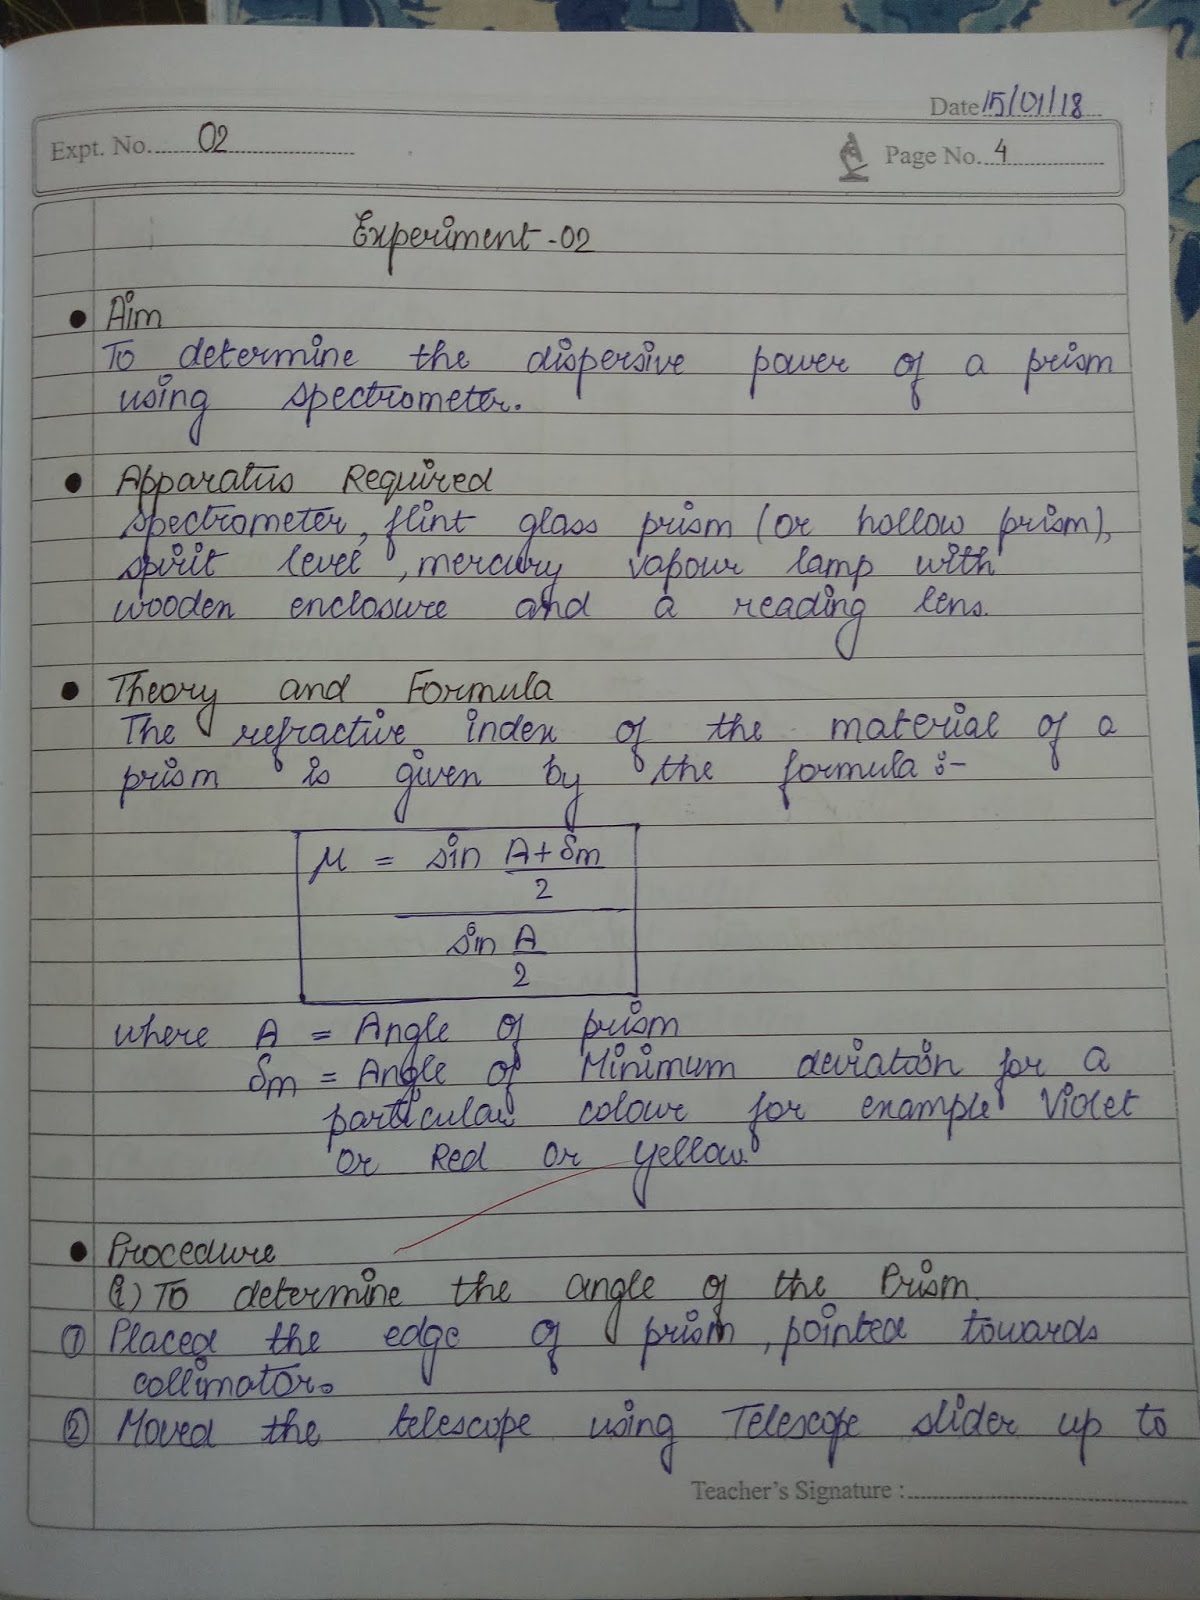 Date 15/01/18
Expt. No. 02
Page No. 4
Experiment-02
• Aim
To determine the dispersive power of a prism
using spectrometer.
• Apparatus Required
spectrometer, flint glass prism (or hollow prism),
spirit level, mercury vapour lamp with
wooden enclosure and a reading lens.
• Theory and Formula
The refractive index of the material of a
prism is given by the formula :-
μ = sin A + δm
2
sin A
2
where A = Angle of prism
δm = Angle of Minimum deviation for a
particular colour for example Violet
or Red or yellow.
• Procedure
a) To determine the angle of the Prism.
① Placed the edge of prism, pointed towards
collimator.
② Moved the telescope using Telescope slider up to
Teacher's Signature :